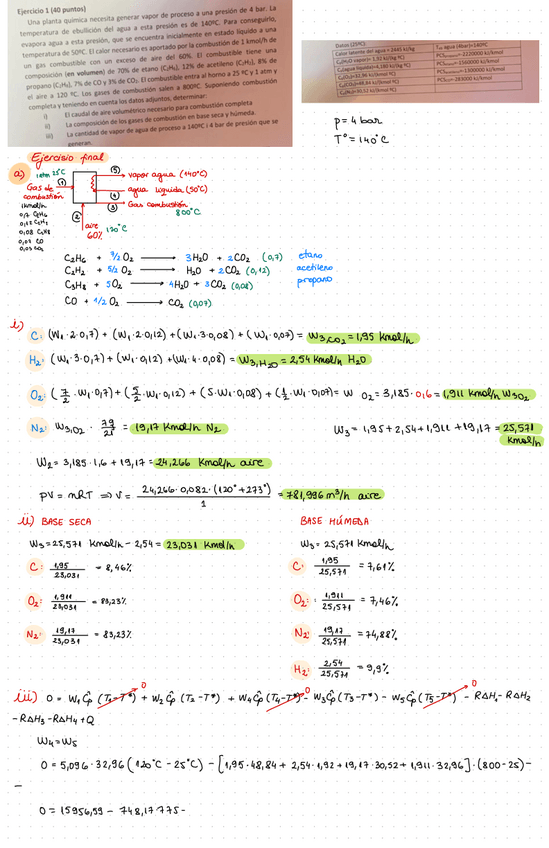 Ejercicio 1 (40 puntos)
Una planta química necesita generar vapor de proceso a una presión de 4 bar. La
temperatura de ebullición del agua a esta presión es de 140ºC. Para conseguirlo,
evapora agua a esta presión, que se encuentra inicialmente en estado líquido a una
temperatura de 50ºC. El calor necesario es aportado por la combustión de 1 kmol/h de
un gas combustible con un exceso de aire del 60%. El combustible tiene una
composición (en volumen) de 70% de etano (C₂H₆), 12% de acetileno (C₂H₂), 8% de
propano (C₃H₈), 7% de CO y 3% de CO₂. El combustible entra al horno a 25 ºC y 1 atm y
el aire a 120 ºC. Los gases de combustión salen a 800ºC. Suponiendo combustión
completa y teniendo en cuenta los datos adjuntos, determinar:
i) El caudal de aire volumétrico necesario para combustión completa
ii) La composición de los gases de combustión en base seca y húmeda.
iii) La cantidad de vapor de agua de proceso a 140ºC i 4 bar de presión que se
generan.
Datos (25ºC)
Calor latente del agua = 2445 kJ/kg
T eb agua (4bar)=140ºC
p = 4 bar
Tº = 140ºC
Ejercicio final
a) 1 atm 25ºC
Gas de combustión
1 kmol/h
0,7 C₂H₆
0,12 C₂H₂
0,08 C₃H₈
0,07 CO
0,03 CO₂
(1)
(5) → vapor agua (140ºC)
agua líquida (50ºC)
(4)
(3) Gas combustión
800ºC
(2)
aire 120ºC
60%
C₂H₆ + 7/2 O₂ → 3H₂O + 2CO₂ (0,7) etano
C₂H₂ + 5/2 O₂ → H₂O + 2CO₂ (0,12) acetileno
C₃H₈ + 5O₂ → 4H₂O + 3CO₂ (0,08) propano
CO + 1/2 O₂ → CO₂ (0,07)
i)
C: (W₁·2·0,7) + (W₁·2·0,12) + (W₁·3·0,08) + (W₁·0,07) = W₃,CO₂ = 1,95 Kmol/h
H₂: (W₁·3·0,7) + (W₁·0,12) + (W₁·4·0,08) = W₃,H₂O = 2,54 Kmol/h H₂O
O₂: (7/2·W₁·0,7) + (5/2·W₁·0,12) + (5·W₁·0,08) + (1/2·W₁·0,07) = W O₂ = 3,185·0,6 = 1,911 Kmol/h W₃O₂
N₂: W₃,O₂ · 79/21 = 19,17 Kmol/h N₂ W₃ = 1,95 + 2,54 + 1,911 + 19,17 = 25,571 Kmol/h
W₂ = 3,185·1,6 + 19,17 = 24,266 Kmol/h aire
PV = nRT ⇒ V = 24,266·0,082·(120º+273º) / 1 = 781,996 m³/h aire
ii) BASE SECA
W₃ = 25,571 Kmol/h - 2,54 = 23,031 Kmol/h
C: 1,95/23,031 = 8,46%
O₂: 1,911/23,031 = 83,23%
N₂: 19,17/23,031 = 83,23%
BASE HÚMEDA
W₃ = 25,571 Kmol/h
C: 1,95/25,571 = 7,61%
O₂: 1,911/25,571 = 7,46%
N₂: 19,17/25,571 = 74,88%
H₂: 2,54/25,571 = 9,9%
iii) 0 = W₁Ĉp(T₁-T*) 0 + W₂Ĉp(T₂-T*) + W₄Ĉp(T₄-T*) 0 - W₃Ĉp(T₃-T*) - W₅Ĉp(T₅-T*) 0 - RΔH₁ - RΔH₂
- RΔH₃ - RΔH₄ + Q
W₄ = W₅
0 = 5,096·32,96(120ºC - 25ºC) - [1,95·48,84 + 2,54·1,92 + 19,17·30,52 + 1,911·32,96]·(800-25) -
-
0 = 15956,59 - 748,17·775 -